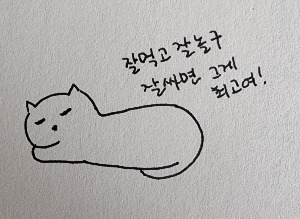 잘먹고 잘놀구
잘싸면 그게
최고여!